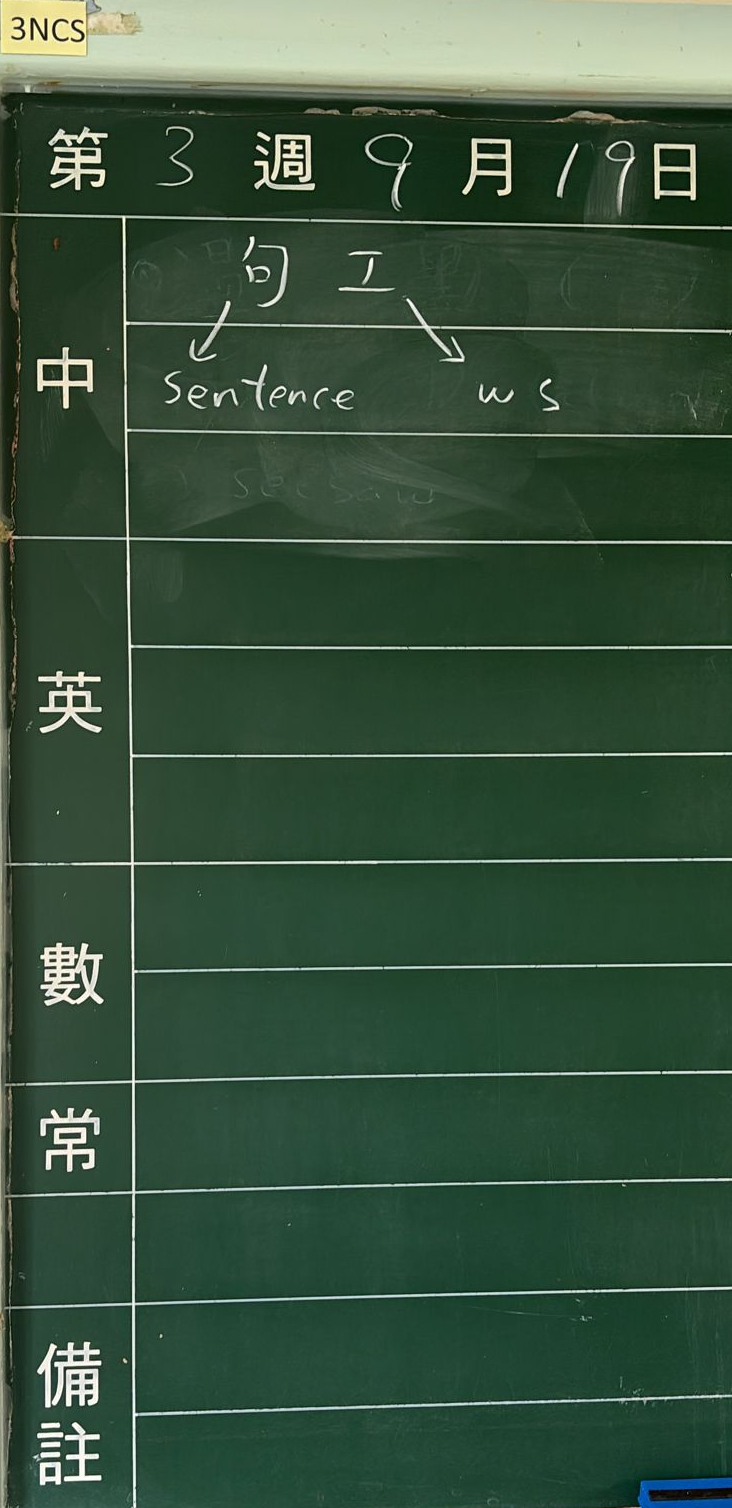 3NCS
第 3 週 9 月 19 日
中
句 工
sentence ws
英
數
常
備註